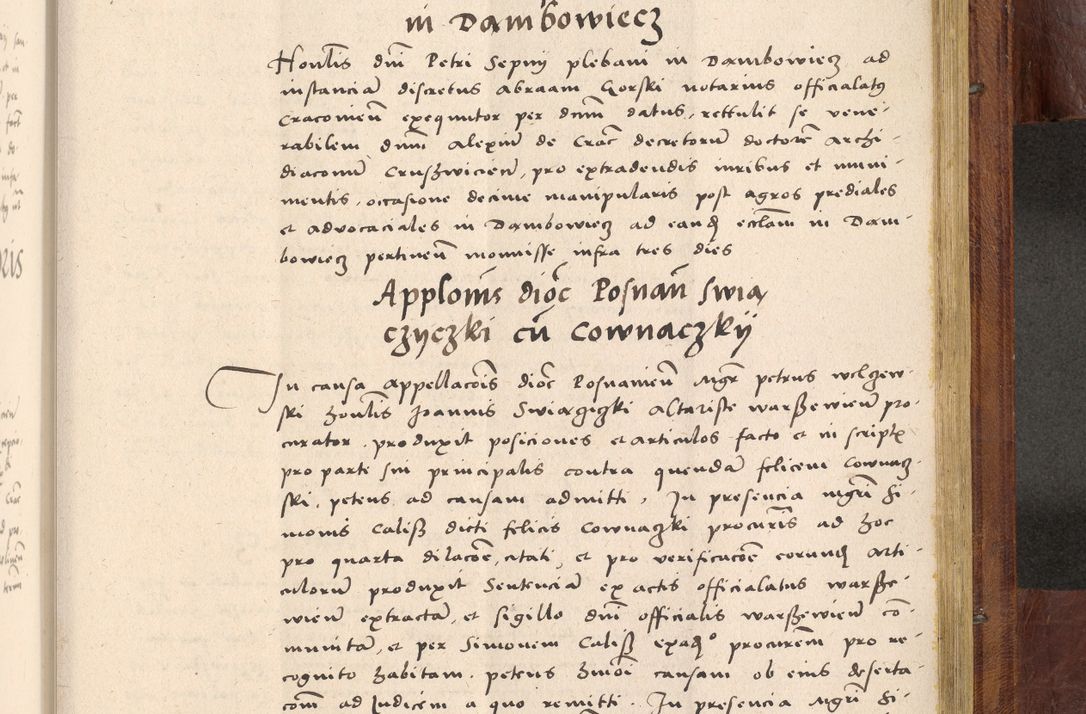 in Dambowiecz
Hon̅lis dn̅i Petri Sepnij plebani in Dambowiecz ad
instanciā discretus Abraam Gorski notarius officialatꝰ
Cracovien̅ exequutor per dn̅m datus, rettulit se vene-
rabilem dn̅m Alexiū de Crac̅ decretorū doctorē Archi-
diaconū Crusßwicien̅, pro extradendis iuribus et muni-
mentis, occasione decime manipularis post agros prediales
et advocaciales in Dambowiecz ad eand ecclām in Dam-
bowiecz pertinen̅ monuisse infra tres dies
Applonis̅ dioc̅ Posnan̅ Swią
czyczki cū Cownaczkij
In causa Appellacōis dioc̅ Posnanien̅ Mgr̅ petrus welczew-
ski Hon̅lis Joannis Swiącziczki Altariste warßewien̅ pro-
curator, produxit posiciones et articulos facto et in script
pro parte sui principalis contra quendā felicem Cownacz-
ski, petens ad causam admitti, In presencia mgr̅i Si-
monis Calisß dicti felicis Cownaczki procur̅is ad hoc
pro quarta dilacōe, citati, et pro verificacōe eorund Arti-
culorū produxit Sentenciā ex actis officialatus warße-
wien̅ extractā, et sigillo dn̅i officialis warßewien̅ cō-
munitā, et per Simonem Calisß exadꝰ procur̅em pro re-
cognito habitam, petens hmōi causam ob eius deserta-
cōm ad Judicem a quo remitti. In presencia Mgr̅i Si-